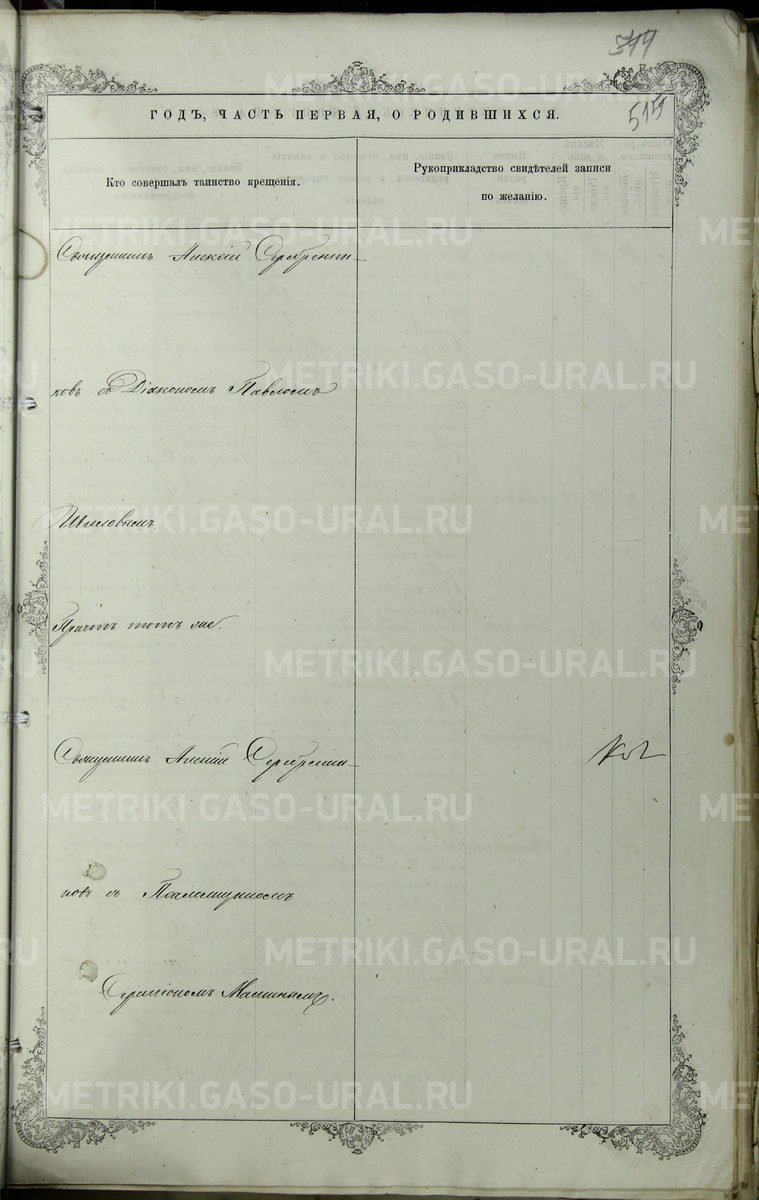 544
515
ГОДЪ, ЧАСТЬ ПЕРВАЯ, О РОДИВШИХСЯ.
Кто совершалъ таинство крещенія.
Рукоприкладство свидѣтелей записи
по желанію.
Священникъ Алексій Серебренни-
ковъ съ Діакономъ Павломъ
Шиловымъ.
Причтъ тотъ же.
Священникъ Алексій Серебренни-
ковъ съ Псаломщикомъ
METRIKI.GASO-URAL.RU